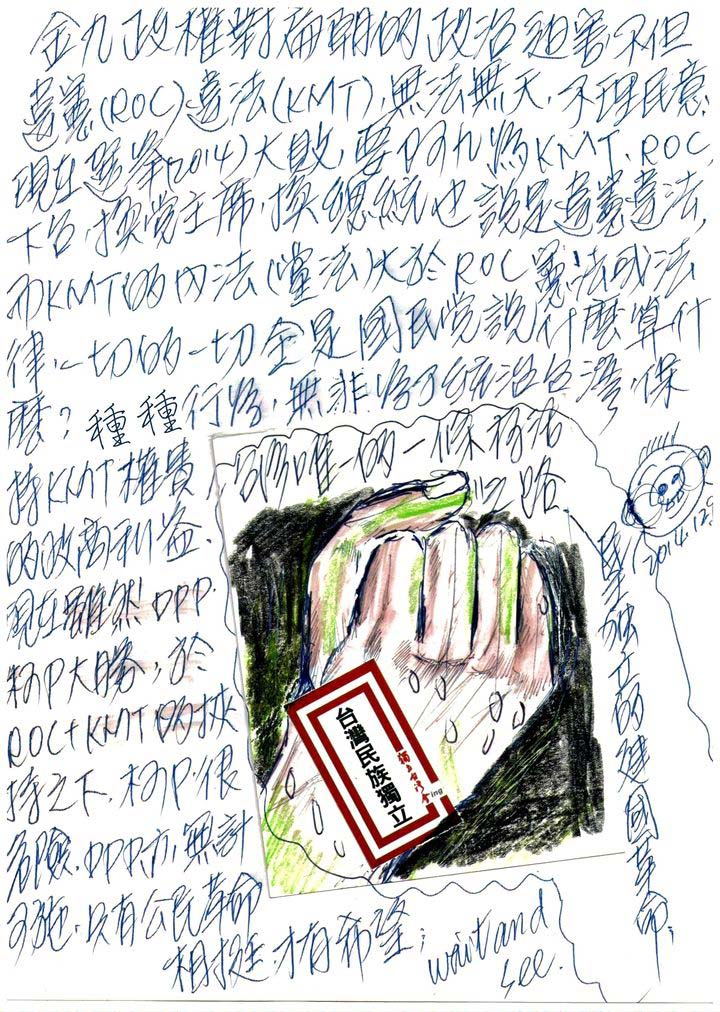 金九政權對扁朝的政治迫害不但
違憲(ROC)違法(KMT),無法無天,不理民意;
現在選舉(2014)大敗,要阿九為KMT、ROC
下台,換党主席,換總統也說是違憲違法,
而KMT的內法(黨法)大於ROC憲法或法
律,一切的一切全是國民党說什麼算什
麼?種種行為,無非為了統治台灣,保
持KMT權貴
的政商利益.
現在雖然DPP.
柯P大勝,於
ROC+KMT的挾
持之下.柯P.很
危險.DPP亦無計
可施.只有公民革命
相挺才有希望;wait and
see.
台灣唯一的一條活
之路
是獨立的建國革命.
2014.12.
台灣民族獨立
獨立台灣會
ing